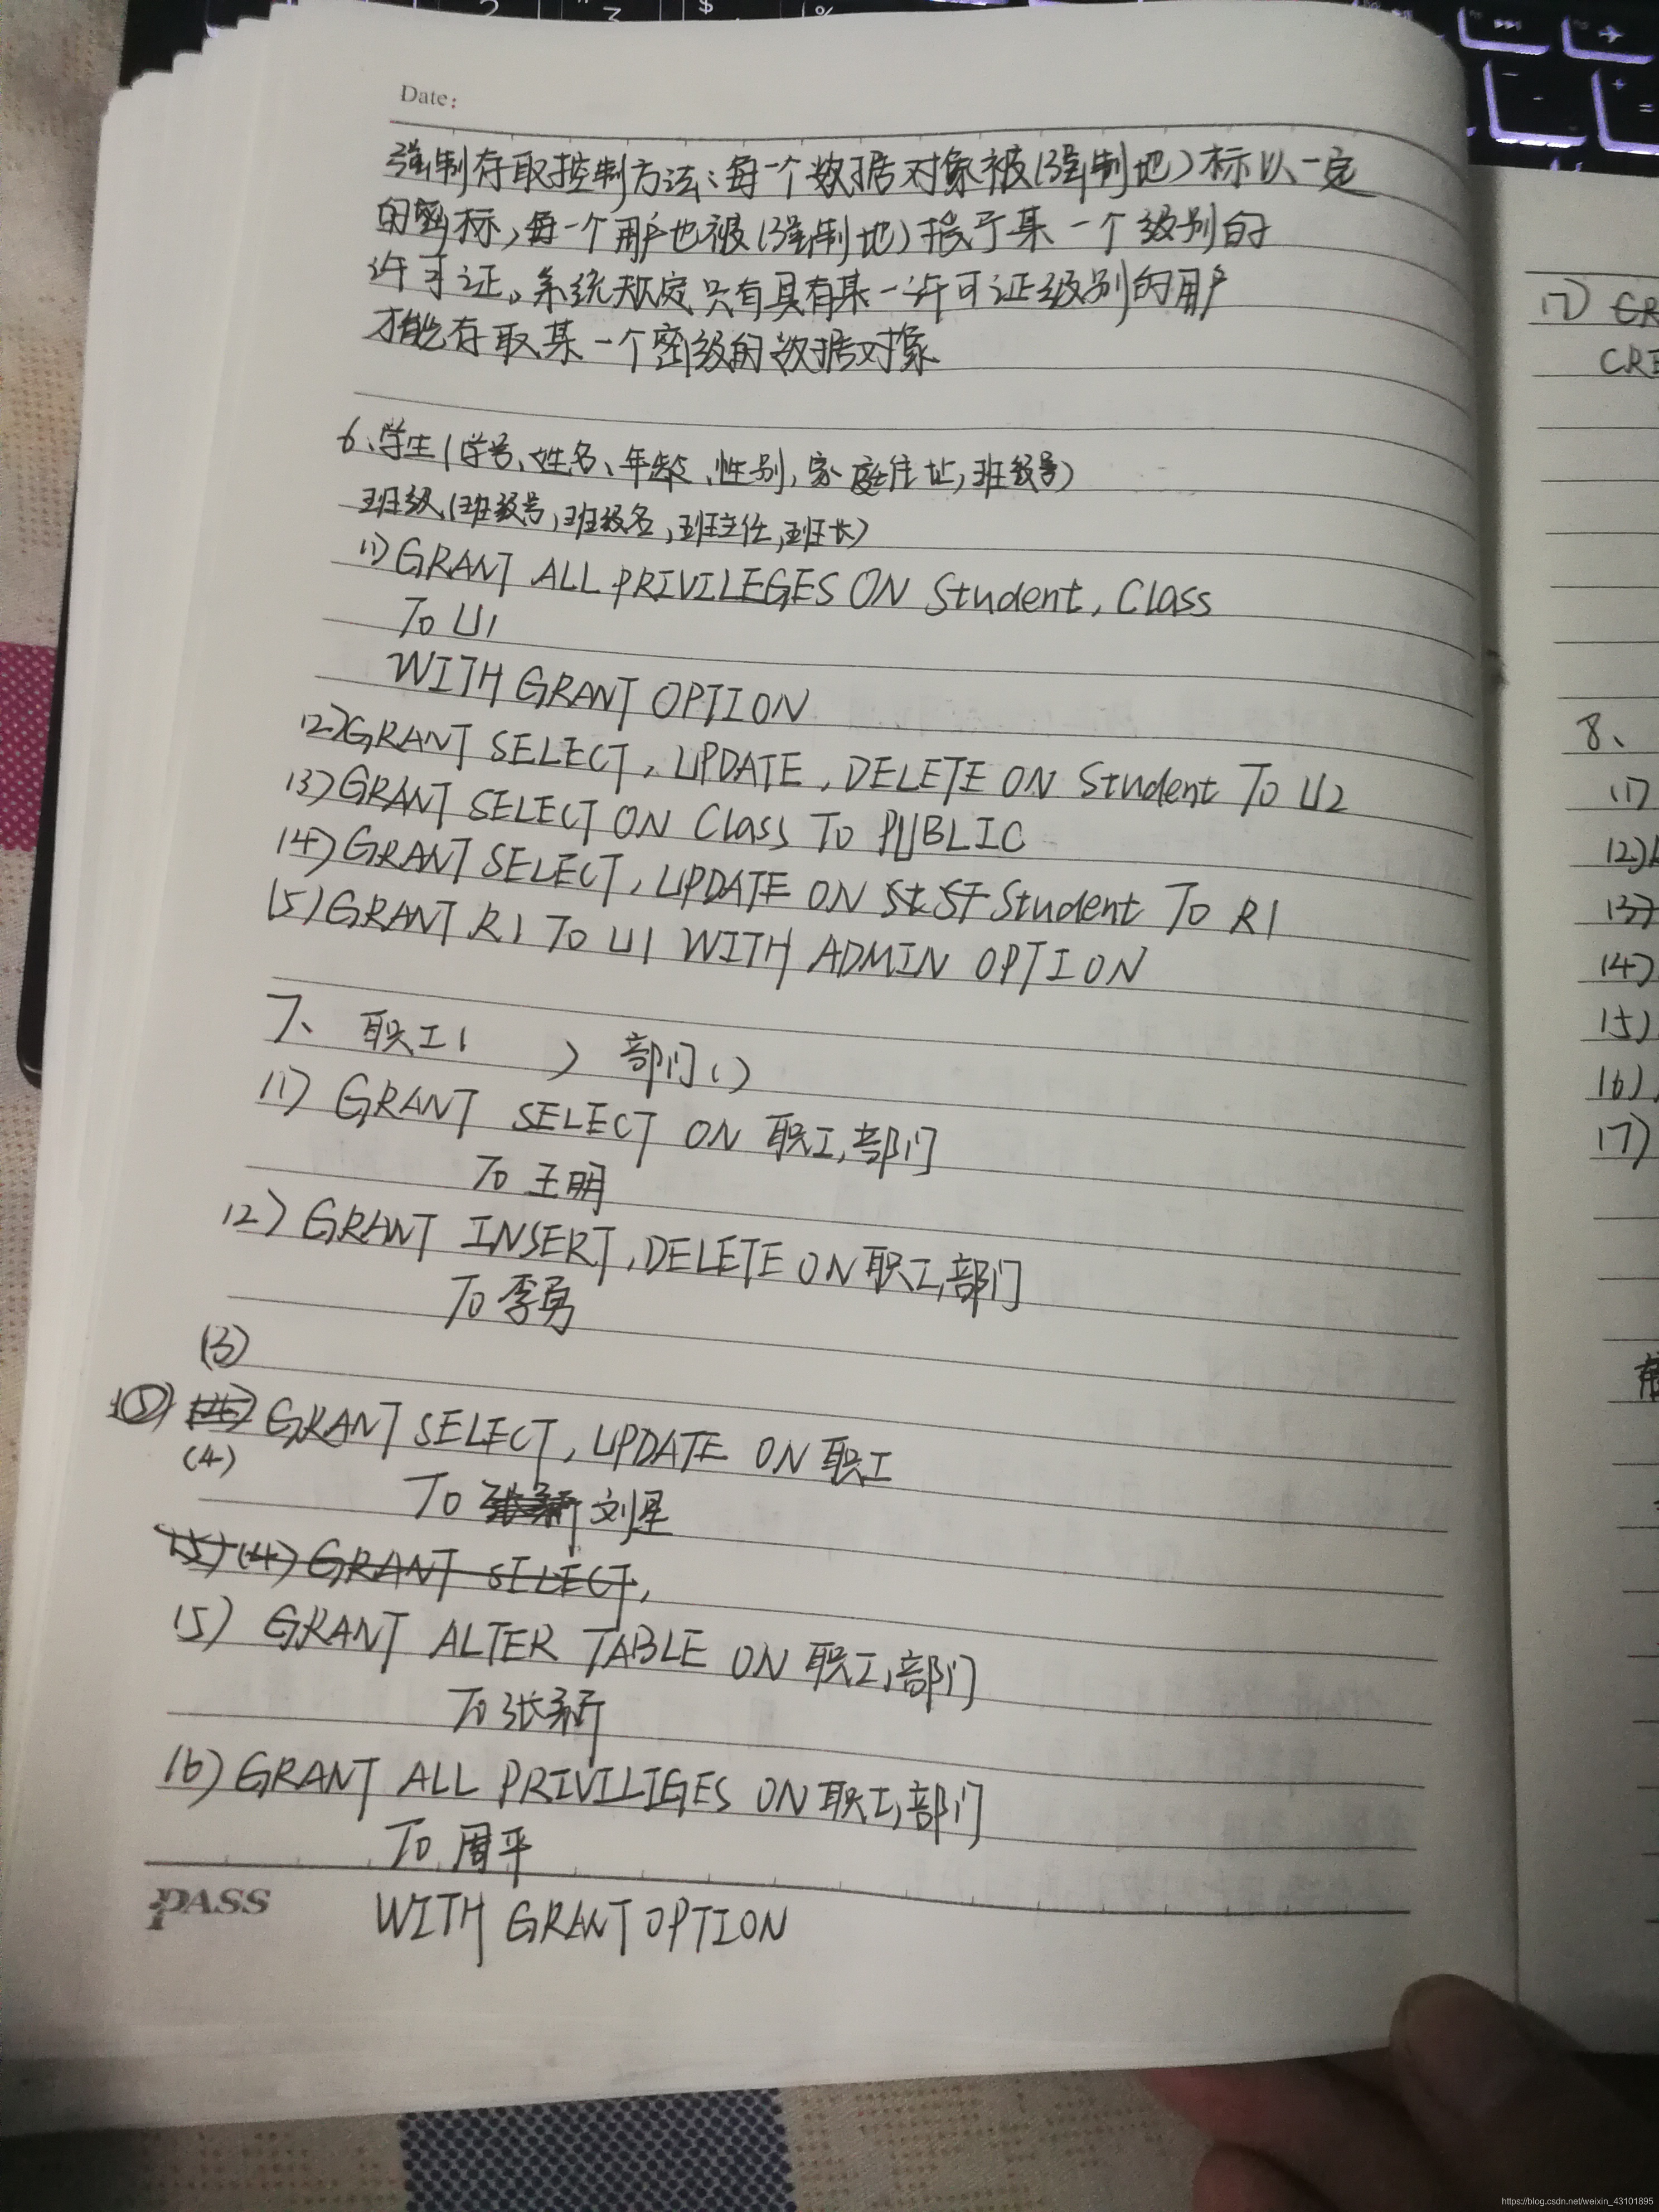 Date:
强制存取控制方法:每一个数据对象被(强制地)标以一定
的密标,每一个用户也被(强制地)授予某一个级别的
许可证。系统规定只有具有某一许可证级别的用户
才能存取某一个密级的数据对象
6、学生(学号、姓名、年龄、性别,家庭住址,班级号)
班级(班级号,班级名,班主任,班长)
(1)GRANT ALL PRIVILEGES ON Student, Class
To U1
WITH GRANT OPTION
(2)GRANT SELECT, UPDATE, DELETE ON Student To U2
(3)GRANT SELECT ON Class To PUBLIC
(4)GRANT SELECT, UPDATE ON St ST Student To R1
(5)GRANT R1 To U1 WITH ADMIN OPTION
7、 职工( ) 部门()
(1) GRANT SELECT ON 职工,部门
To 王明
(2) GRANT INSERT, DELETE ON 职工,部门
To 李勇
(3)
(5) GRANT SELECT, UPDATE ON 职工
(4)
To 张新 刘星
(5) (4) GRANT SELECT,
(5) GRANT ALTER TABLE ON 职工,部门
To 张新
(6) GRANT ALL PRIVILIGES ON 职工,部门
To 周平
WITH GRANT OPTION
PASS
(7) CR
CRE
8、
(1)
(2)
(3)
(4)
(5)
(6)
(7)
https://blog.csdn.net/weixin_43101895